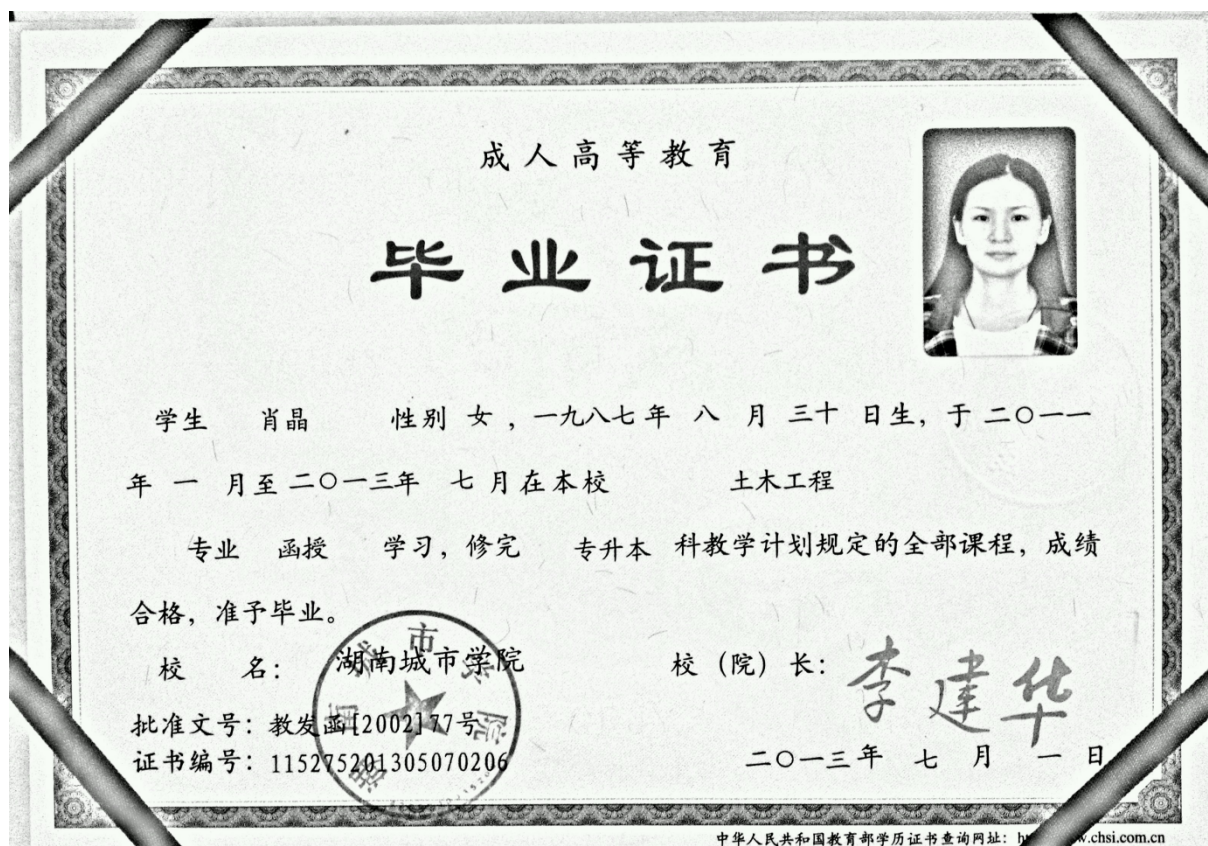 成人高等教育
毕业证书
学生 肖晶 性别 女，一九八七年 八 月 三十 日生，于 二〇一一
年 一 月至 二〇一三年 七 月在本校 土木工程
专业 函授 学习，修完 专升本 科教学计划规定的全部课程，成绩
合格，准予毕业。
校 名： 湖南城市学院 校（院）长： 李建华
批准文号：教发函[2002]77号
证书编号：115275201305070206 二〇一三年 七 月 一 日
湖南城市学院
中华人民共和国教育部学历证书查询网址： .chsi.com.cn